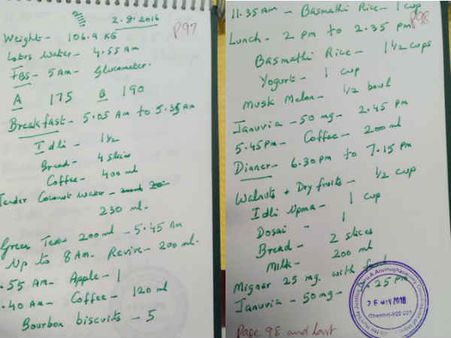 2.8.2016
P97
Weight- 106.9 KG
Lotus Water - 4.55 am
FBS- 5 am - Glucometer.
A 175 B 190
Breakfast - 5.05 am to 5.35 am
Idli - 1½
Bread- 4 slices
Coffee - 400 ml
Tender Coconut Water -
230 ml.
Green Tea 200 ml - 5.45 am
Up to 8 am. Revive - 200 ml.
.55 am- Apple - 1
.40 am- Coffee - 120 ml
Bourbon biscuits - 5
11.35 am - Basmathi Rice - 1 cup
P98
Lunch - 2 pm to 2.35 pm
Basmathi Rice- 1½ cups
Yogurt - 1 cup
Musk Melon- ½ bowl
Januvia - 50 mg - 2.45 pm
5.45 pm- Coffee - 200 ml
Dinner - 6.30 pm to 7.15 pm
Walnuts + Dry fruits - ½ cup
Idli Upma - 1 cup
Dosai - 1
Bread - 2 slices
Milk - 200 ml
Mignar 25 mg. with food
Januvia - 50 mg- 25 pm
Page 98 and last
2018